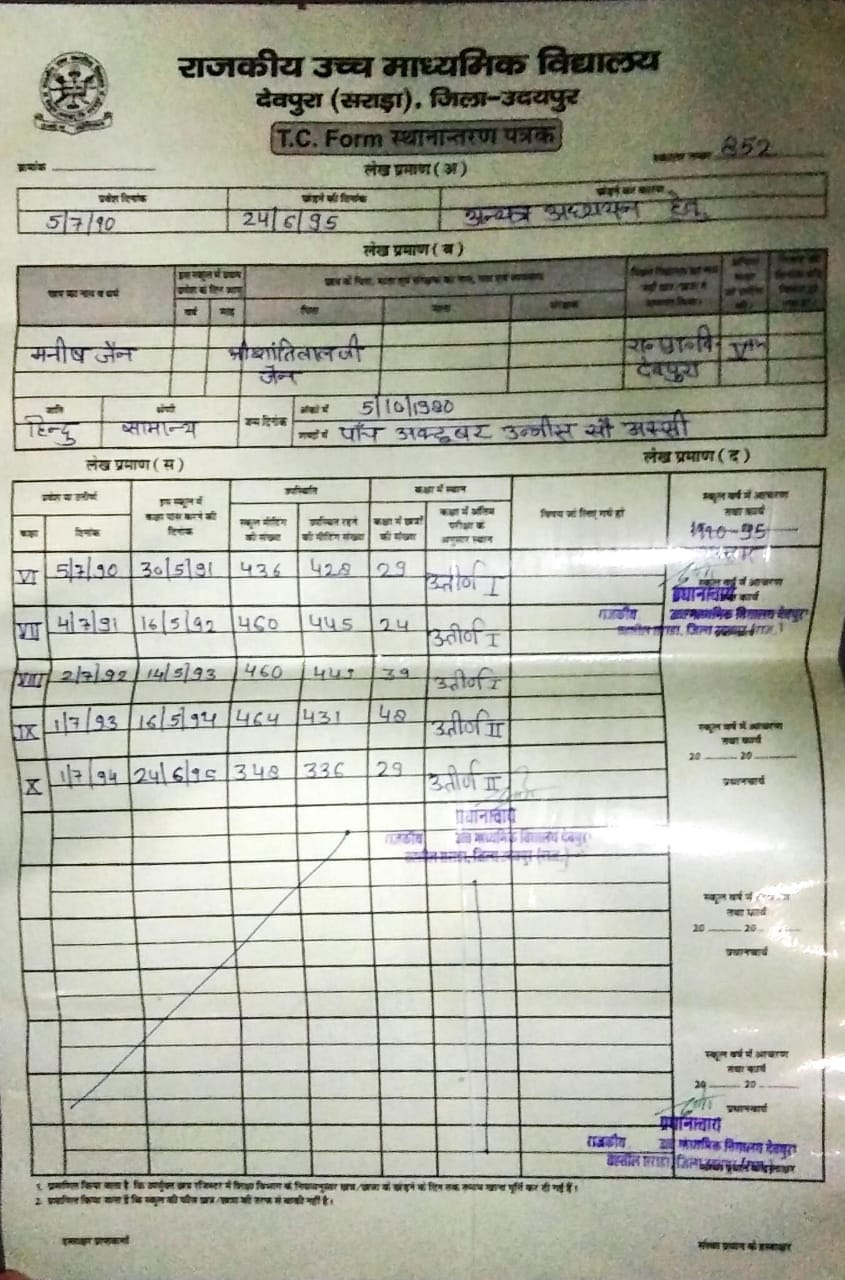 राजकीय उच्च माध्यमिक विद्यालय
देवपुरा (सराड़ा), जिला-उदयपुर
T.C. Form स्थानान्तरण पत्रक
क्रमांक
852
लेख प्रमाण ( अ )
प्रवेश दिनांक छोड़ने की दिनांक छोड़ने का कारण
5/7/90 24/6/95 अन्यत्र अध्ययन हेतु
लेख प्रमाण ( ब )
छात्र का नाम व धर्म
वर्ष माह पिता माता संरक्षक
मनीष जैन श्री शांतिलाल जी जैन देवपुरा
जाति श्रेणी जन्म दिनांक अंकों में 5/10/1980
हिन्दु सामान्य शब्दों में पाँच अक्टूबर उन्नीस सौ अस्सी
लेख प्रमाण ( स ) लेख प्रमाण ( द )
प्रवेश या उत्तीर्ण इस स्कूल में कक्षा पास करने की दिनांक उपस्थिति कक्षा में स्थान विषय जो लिए गये हो स्कूल वर्ष में आचरण तथा कार्य
कक्षा दिनांक स्कूल मीटिंग की संख्या उपस्थित रहने की मीटिंग संख्या कक्षा में छात्रों की संख्या कक्षा में अंतिम परीक्षा के अनुसार स्थान
1990-95
VI 5/7/90 30/5/91 436 428 29 उत्तीर्ण I
प्रधानाचार्य
राजकीय उच्च माध्यमिक विद्यालय देवपुरा
तहसील सराडा, जिला उदयपुर (राज.)
VII 4/7/91 16/5/92 460 445 24 उत्तीर्ण I
VIII 2/7/92 14/5/93 460 39 उत्तीर्ण I
IX 1/7/93 16/5/94 464 431 48 उत्तीर्ण II
स्कूल वर्ष में आचरण
तथा कार्य
20 20
प्रधानाचार्य
X 1/7/94 24/6/95 348 336 29 उत्तीर्ण II
प्रधानाचार्य
राजकीय उच्च माध्यमिक विद्यालय देवपुरा
तहसील सराडा, जिला उदयपुर (राज.)
स्कूल वर्ष में आचरण
तथा कार्य
20 20
प्रधानाचार्य
स्कूल वर्ष में आचरण
तथा कार्य
20 20
प्रधानाचार्य
प्रधानाचार्य
राजकीय उच्च माध्यमिक विद्यालय देवपुरा
तहसील सराडा, जिला उदयपुर (राज.)
1. प्रमाणित किया जाता है कि उपर्युक्त छात्र रजिस्टर में शिक्षा विभाग के नियमानुसार छात्र/छात्रा के छोड़ने के दिन तक समस्त खाना पूर्ति कर दी गई हैं।
2. प्रमाणित किया जाता है कि स्कूल की फीस छात्र/छात्रा की तरफ से बाकी नहीं है।
संस्था प्रधान के हस्ताक्षर